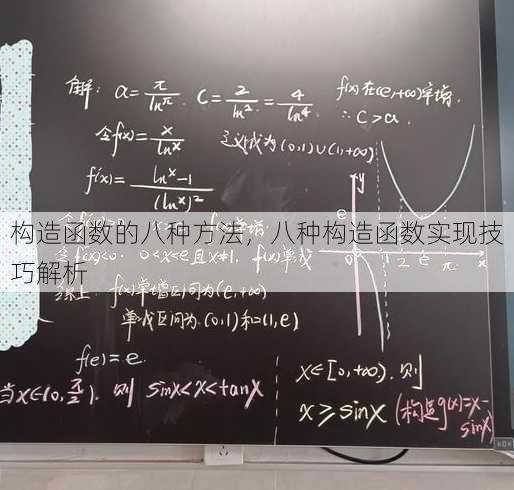 解: a = π/lnπ, c = 2/ln2 = 4/ln4
f(x)在(e,+∞)单增.
∴ c > a.
令f(x) = x/lnx
定义域为(0,1)∪(1,+∞)
f'(x) = (lnx-1)/(lnx)²
y
e
构造函数的八种方法，八种构造函数实现技
巧解析
0<x<e且x≠1, f(x)单减
0 1 2 e π x
综上: f(x)单增区间为(e,+∞)
单减区间为(0,1)和(1,e)
f(e)=e.
当x∈(0,π/2). 则 sinx<x<tanx
x∈[0,+∞). 则
x≥sinx (构造g(x)=x-
sinx)